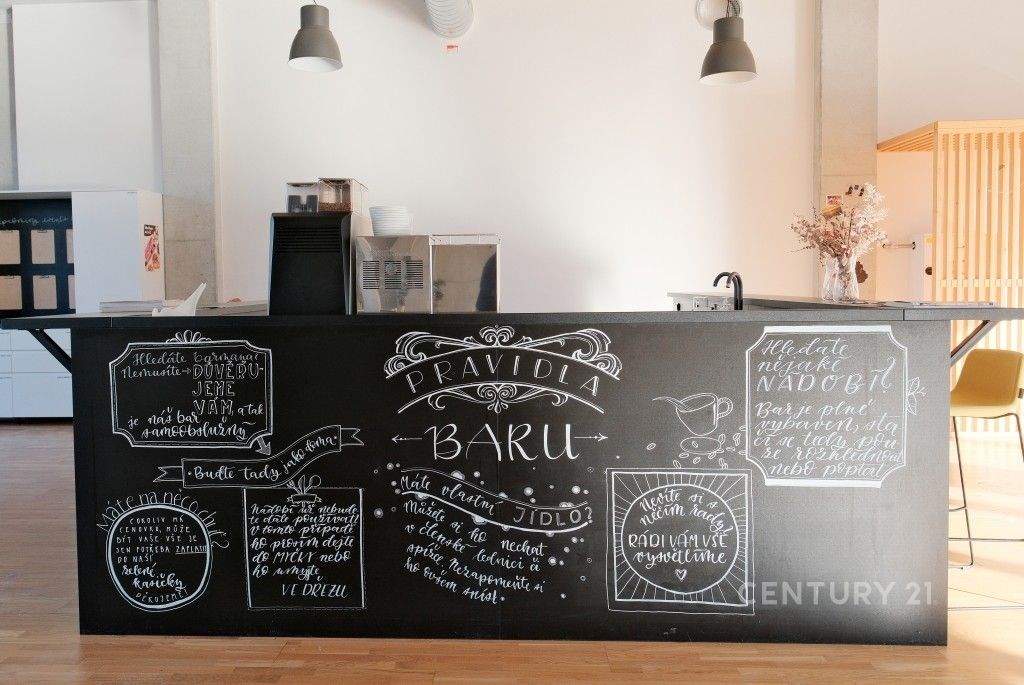 PRAVIDLA
BARU
Hledáte barmana?
Nemusíte → DŮVĚRU-
JEME
VÁM, a tak
je náš bar
samoobslužný
Buďte tady jako doma
Máte na něco chuť?
COKOLIV MÁ
CENOVKU, MŮŽE
BÝT VAŠE. VŠE JE
JEN POTŘEBA ZAPLATIT
DO NAŠÍ
zelené
kasičky
DĚKUJEME!
Nádobí už nebude-
te dále používat?
V tomto případě
ho prosím dejte
do MYČKY nebo
ho umyjte
VE DŘEZU
Máte vlastní JÍDLO?
Můžete si ho nechat
v členské lednici a
spíže. Nezapomeňte si
ho ovšem sníst.
Nevíte si
něčím rady?
RÁDI VÁM VŠE
vysvětlíme
Hledáte
nějaké
NÁDOBÍ?
Bar je plně
vybaven, sta-
čí se tedy poů
se rozhlédnout
nebo poptat
CENTURY 21